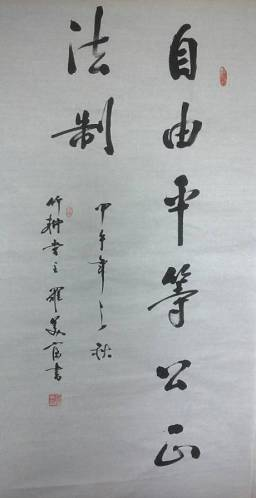 自由平等公正
法制
甲午年之秋
竹耕堂主罗美富书